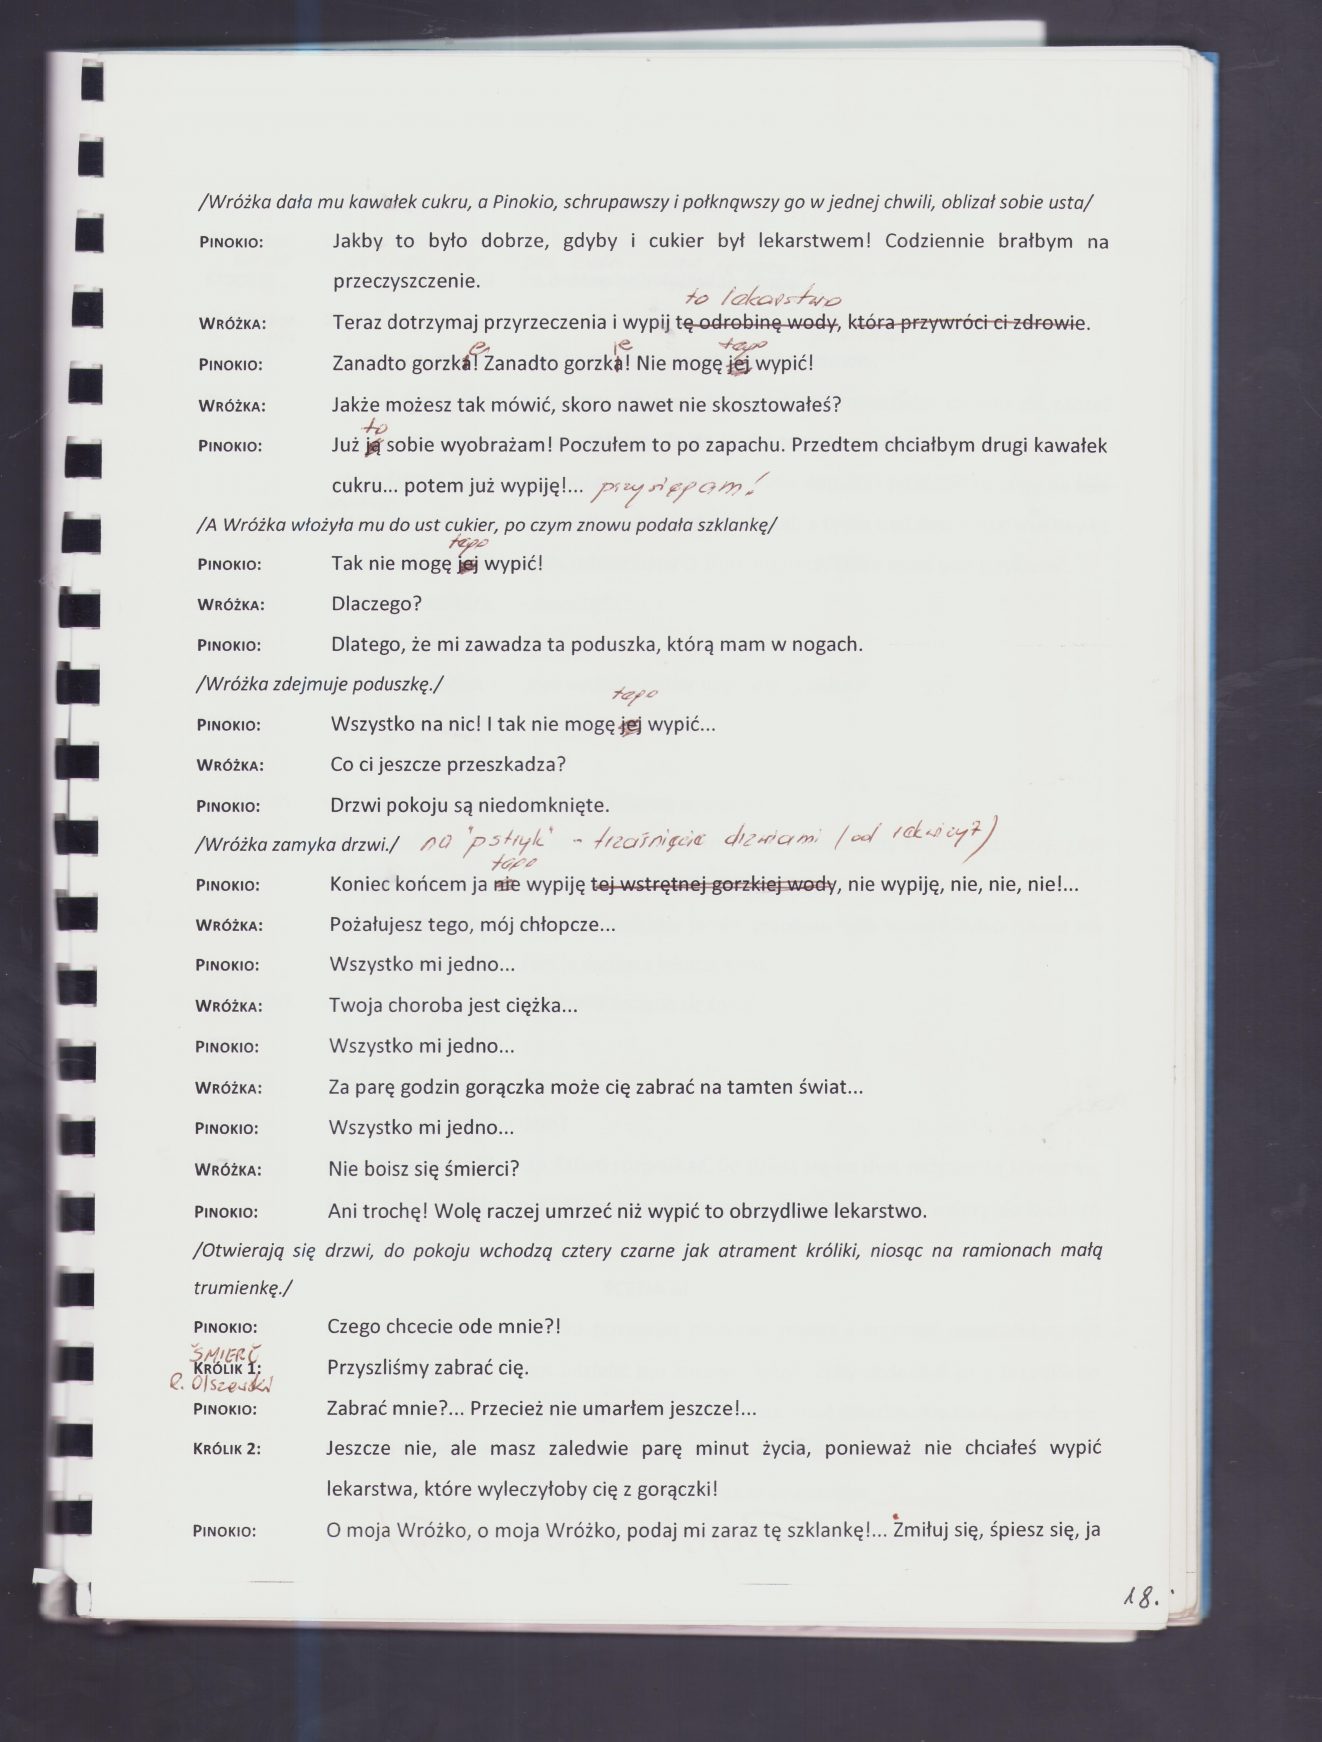 /Wróżka dała mu kawałek cukru, a Pinokio, schrupawszy i połknąwszy go w jednej chwili, oblizał sobie usta/
PINOKIO: Jakby to było dobrze, gdyby i cukier był lekarstwem! Codziennie brałbym na
przeczyszczenie.
to lekarstwo
WRÓŻKA: Teraz dotrzymaj przyrzeczenia i wypij tę odrobinę wody, która przywróci ci zdrowie.
e ie tego
PINOKIO: Zanadto gorzka! Zanadto gorzka! Nie mogę jej wypić!
WRÓŻKA: Jakże możesz tak mówić, skoro nawet nie skosztowałeś?
to
PINOKIO: Już ją sobie wyobrażam! Poczułem to po zapachu. Przedtem chciałbym drugi kawałek
cukru... potem już wypiję!... przysięgam!
/A Wróżka włożyła mu do ust cukier, po czym znowu podała szklankę/
tego
PINOKIO: Tak nie mogę jej wypić!
WRÓŻKA: Dlaczego?
PINOKIO: Dlatego, że mi zawadza ta poduszka, którą mam w nogach.
/Wróżka zdejmuje poduszkę./
tego
PINOKIO: Wszystko na nic! I tak nie mogę jej wypić...
WRÓŻKA: Co ci jeszcze przeszkadza?
PINOKIO: Drzwi pokoju są niedomknięte.
/Wróżka zamyka drzwi./ na "pstryk" - trzaśnięcie drzwiami (od rekwizyt)
tego
PINOKIO: Koniec końcem ja nie wypiję tej wstrętnej gorzkiej wody, nie wypiję, nie, nie, nie!...
WRÓŻKA: Pożałujesz tego, mój chłopcze...
PINOKIO: Wszystko mi jedno...
WRÓŻKA: Twoja choroba jest ciężka...
PINOKIO: Wszystko mi jedno...
WRÓŻKA: Za parę godzin gorączka może cię zabrać na tamten świat...
PINOKIO: Wszystko mi jedno...
WRÓŻKA: Nie boisz się śmierci?
PINOKIO: Ani trochę! Wolę raczej umrzeć niż wypić to obrzydliwe lekarstwo.
/Otwierają się drzwi, do pokoju wchodzą cztery czarne jak atrament króliki, niosąc na ramionach małą
trumienkę./
PINOKIO: Czego chcecie ode mnie?!
ŚMIERĆ
KRÓLIK 1: Przyszliśmy zabrać cię.
R. Olszewski
PINOKIO: Zabrać mnie?... Przecież nie umarłem jeszcze!...
KRÓLIK 2: Jeszcze nie, ale masz zaledwie parę minut życia, ponieważ nie chciałeś wypić
lekarstwa, które wyleczyłoby cię z gorączki!
PINOKIO: O moja Wróżko, o moja Wróżko, podaj mi zaraz tę szklankę!... Zmiłuj się, śpiesz się, ja
18.